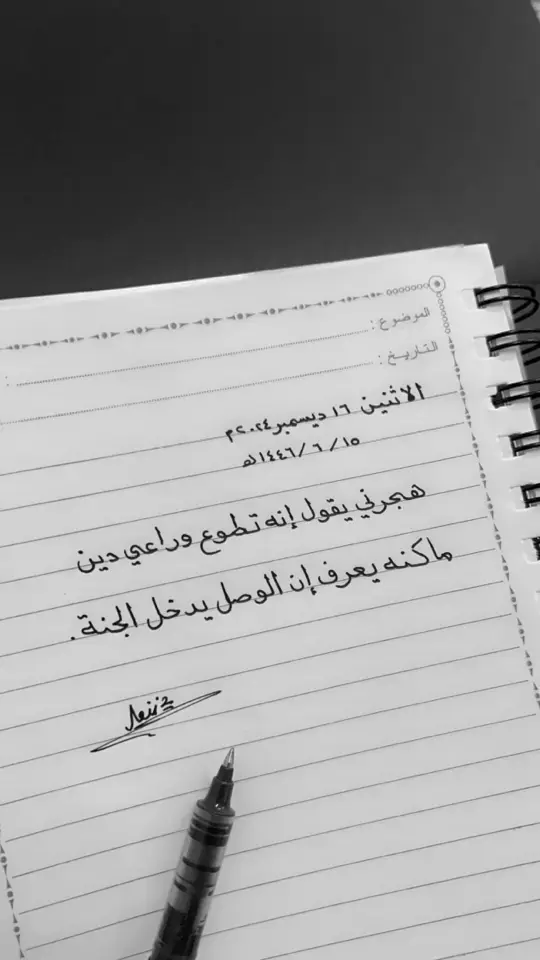 الموضوع :
التاريخ :
الاثنين ١٦ ديسمبر ٢٠٢٤م
١٤٤٦/٦/١٥هـ
هجرني يقول إنه تطوع وراعي دين
ماكنه يعرف إن الوصل يدخل الجنة .